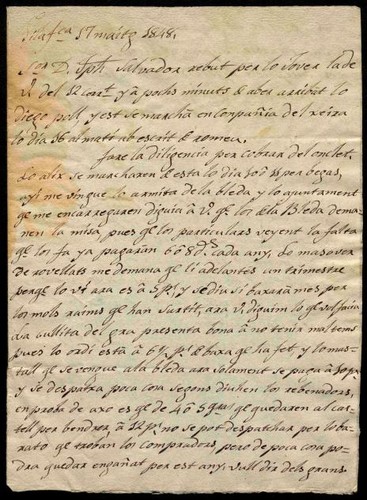 Vilafca 17 maitg 1848.
Sor D. Jph Salvador rebut per lo Jover la de
V. del 12 cort y à pochs minuts de aver arribat lo
diego pull, y est se marchà en conpañia del reira
lo dia 16 al matí ab escrit de romeu.
Fare la diligencia per cobrar del onclet.
Lo alix se marcharen de esta lo dia 30 per
ayí me vingue lo armita de la bleda y lo ajuntament
qe me encarregaren diguia à V. qe los de la Bleda dema-
nen la misa, pues qe los particulars veyent la falta
qe los fa ya pagarian 6 o 8 ds. cada any, Lo masover
de revellats me demana qe li adelantes un trimestre
perqe lo vi ara es à 5 p. y se diu si baxara mes per
los mols raims qe han surtit, ara V. diguim lo qe vol faria
La cullita del gra presenta bona à no tenir mal temps
pues lo ordi està à 6 p. de baxa qe ha fet y lo mas-
tall qe se vengue ala bleda ara solament se paga à 30 p.
y se despatxa poca cosa segons diuhen los rebenadors,
en proba de axo es qe de 4 o 5 qe quedaren al cas-
tell per bendrer à 12 p. no se pot despatchar per lo ba-
rato qe troban los compradors, pero de poca cosa po-
dra quedar engañat per est any, vull dir dels grans.